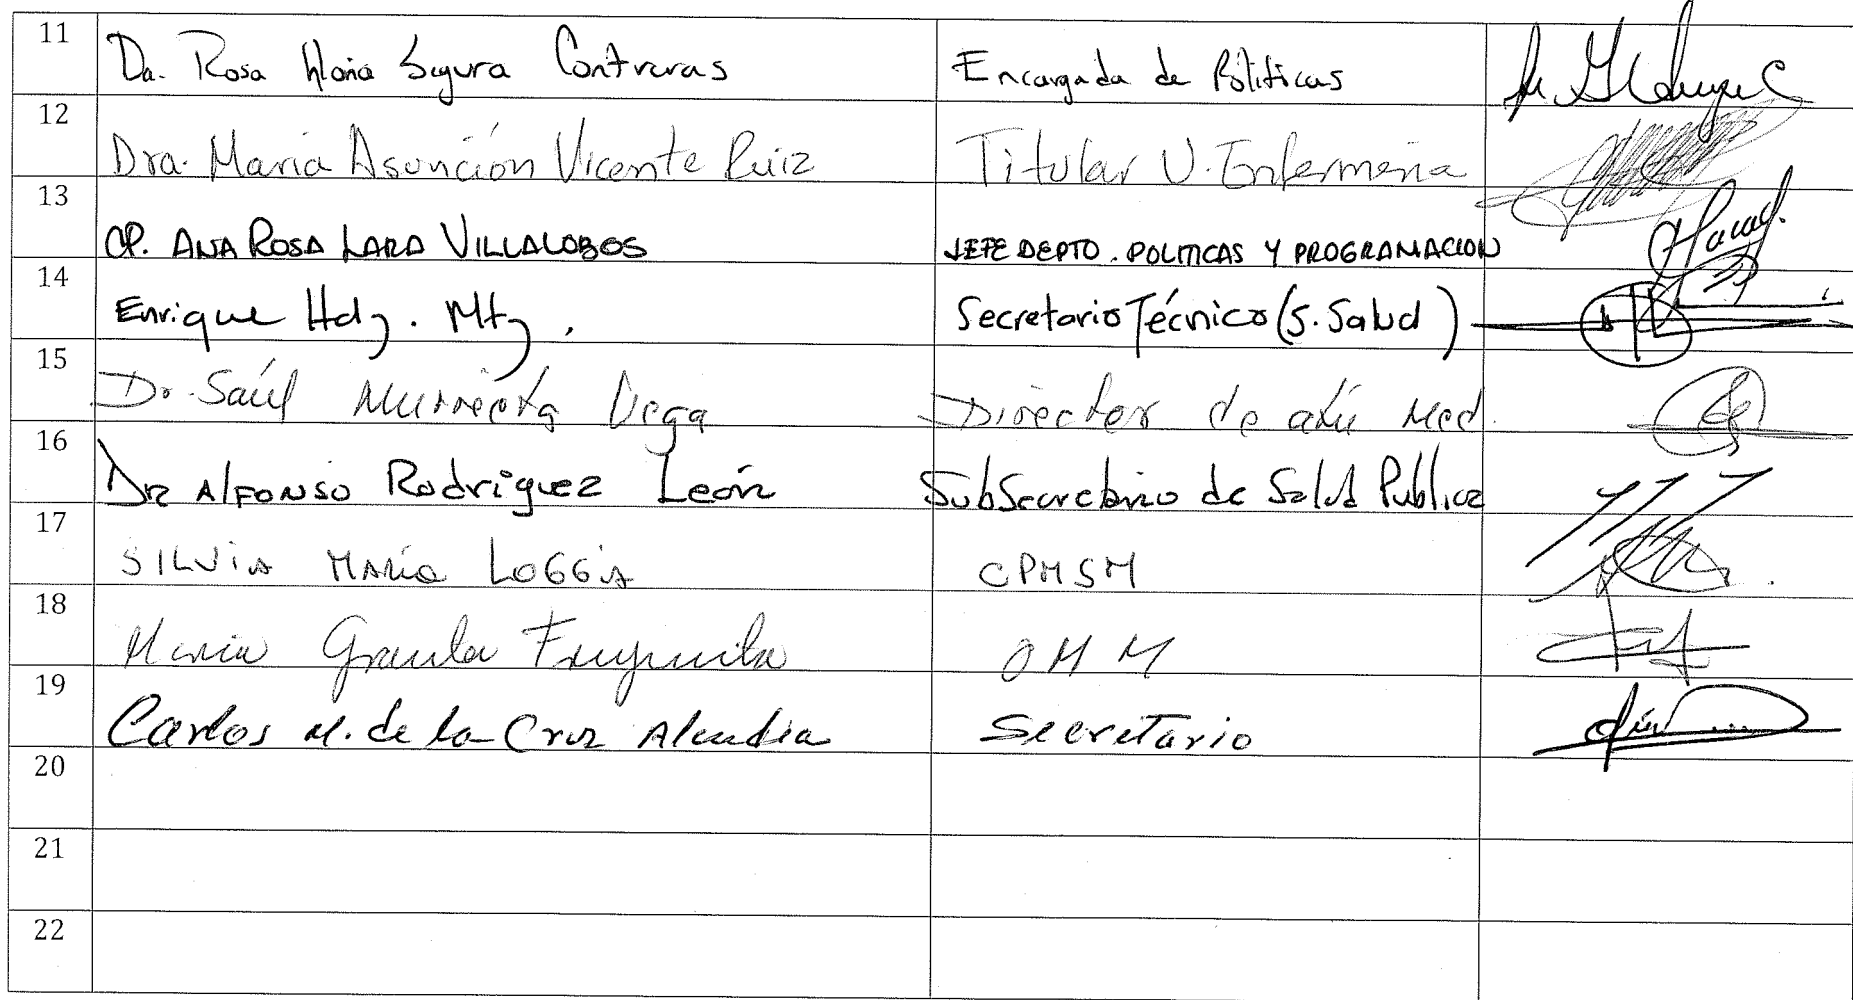 11 Da. Rosa María Segura Contreras Encargada de Políticas
12 Dra. María Asunción Vicente Ruiz Titular U. Enfermería
13 CP. ANA ROSA LARA VILLALOBOS JEFE DEPTO. POLITICAS Y PROGRAMACION
14 Enrique Hdz. Mtz. Secretario Técnico (S. Salud)
15 Dr. Saúl Murrieta Vega Director de Med.
16 Dr Alfonso Rodríguez León SubSecretario de Salud Publica
17 SILVIA MARÍA LOGGIA CPMSM
18 María OMM
19 Carlos M. de la Cruz Alcudia Secretario
20
21
22